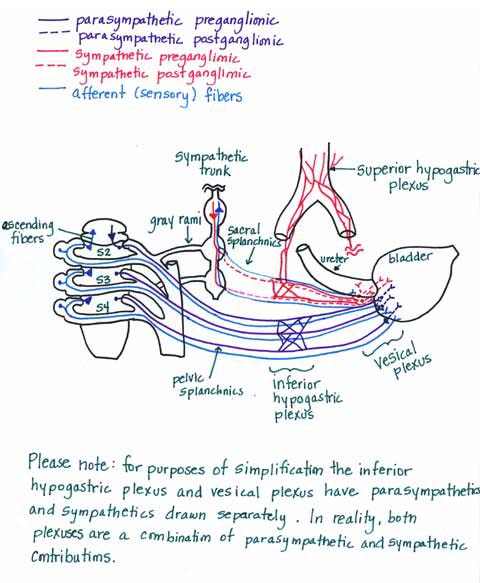 parasympathetic preganglionic
parasympathetic postganglionic
sympathetic preganglionic
sympathetic postganglionic
afferent (sensory) fibers
sympathetic
trunk
superior hypogastric
plexus
ascending
fibers
gray rami
sacral
splanchnics
ureter
bladder
S2
S3
S4
pelvic
splanchnics
inferior
hypogastric
plexus
vesical
plexus
Please note: for purposes of simplification the inferior
hypogastric plexus and vesical plexus have parasympathetics
and sympathetics drawn separately. In reality, both
plexuses are a combination of parasympathetic and sympathetic
contributions.